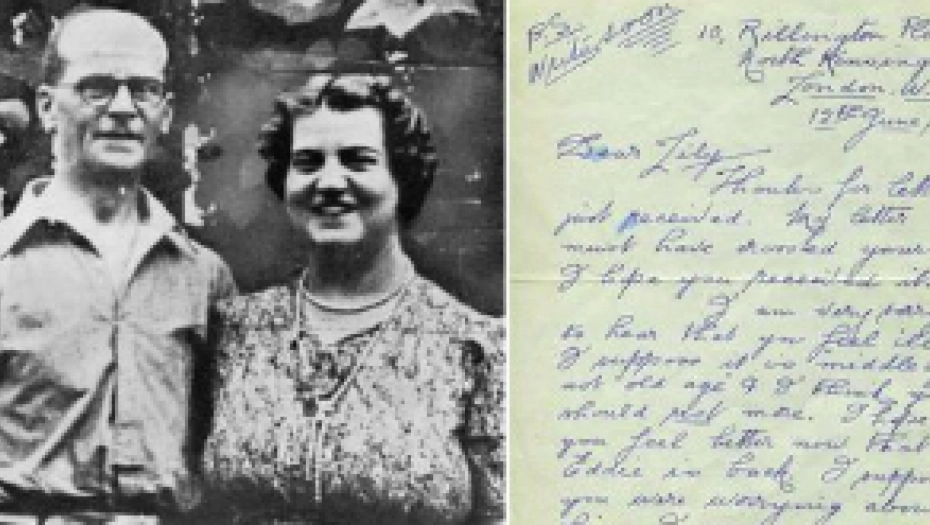 P.S. Write soon
10, Rillington Pla
North Kensing
London. W.
12th June,
Dear Lily
Thanks for lett
just received. My letter
must have crossed your
I hope you received
I am very sor
to hear that you feel ill
I suppose it is middle
not old age & I think y
should rest more. I hope
you feel better now that
Eddie is back. I suppo
you were worrying abou